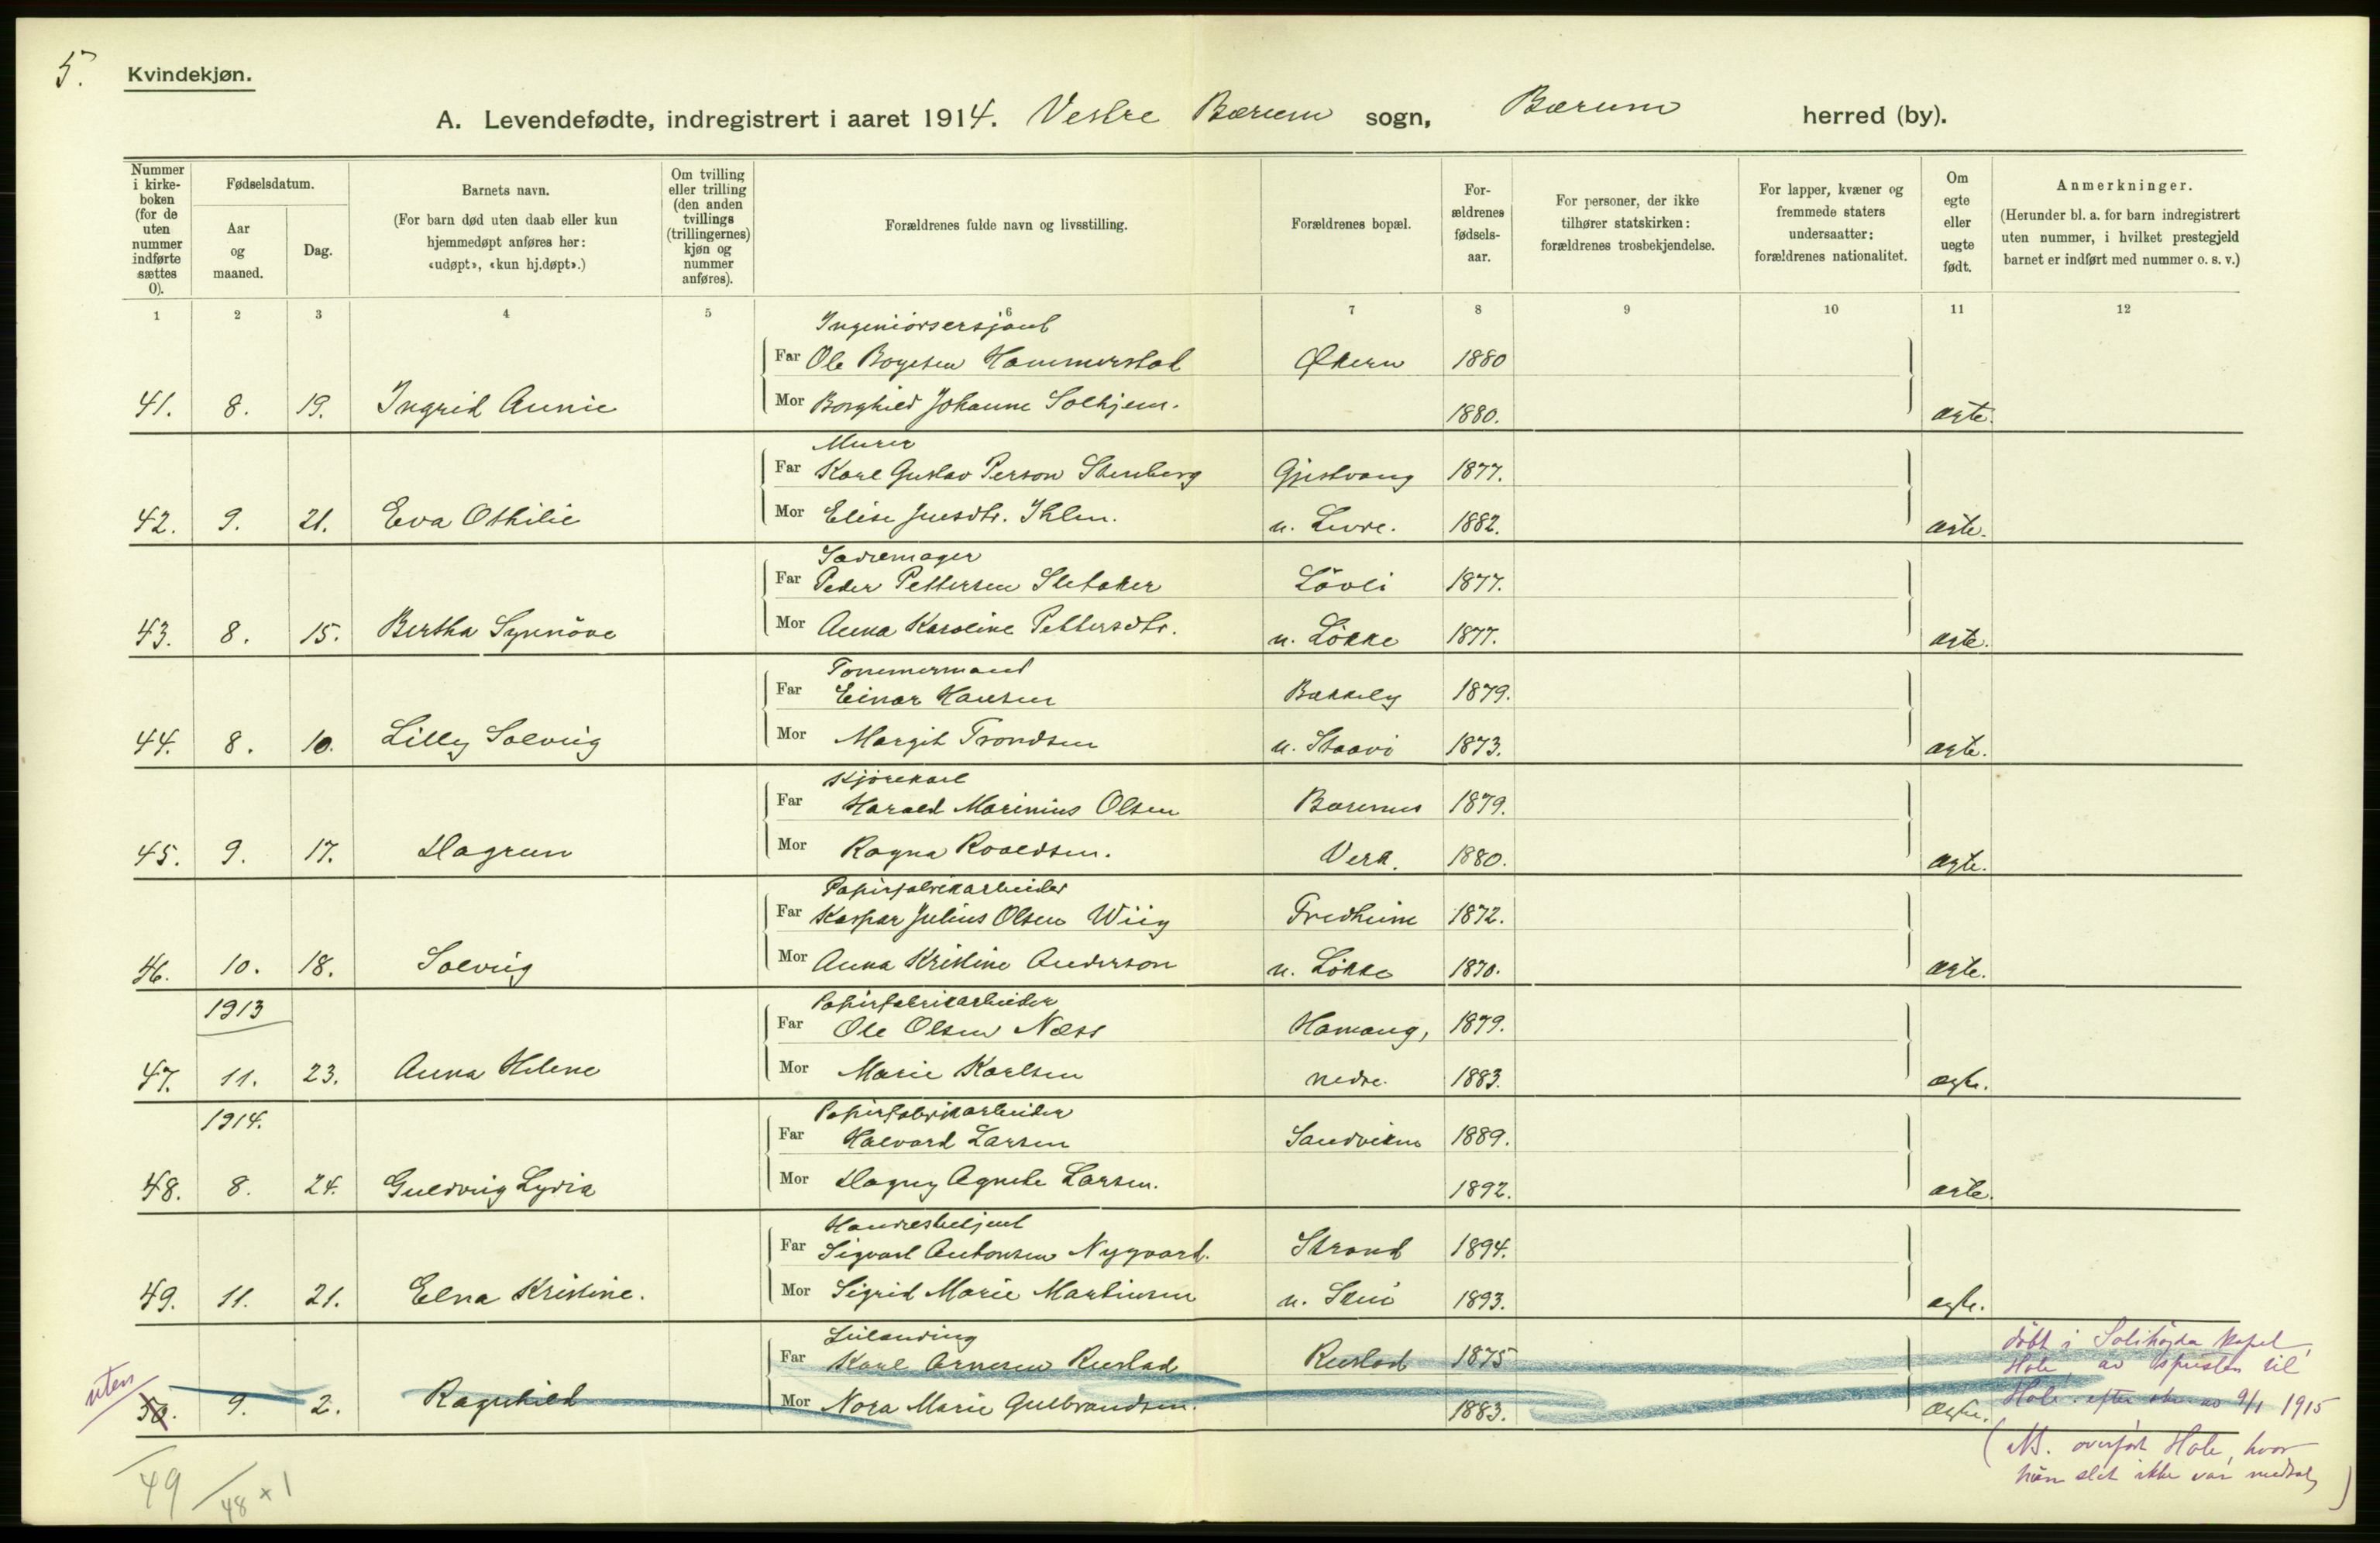 5.
Kvindekjøn.
A. Levendefødte, indregistrert i aaret 1914. Vestre Bærum sogn, Bærum herred (by).
Nummer i kirke-boken (for de uten nummer indførte sættes 0).
Fødselsdatum.
Aar og maaned.
Dag.
Barnets navn.
(For barn død uten daab eller kun hjemmedøpt anføres her: «udøpt», «kun hj.døpt».)
Om tvilling eller trilling (den anden tvillings (trillingernes) kjøn og nummer anføres).
Forældrenes fulde navn og livsstilling.
Forældrenes bopæl.
For-ældrenes fødsels-aar.
For personer, der ikke tilhører statskirken: forældrenes trosbekjendelse.
For lapper, kvæner og fremmede staters undersaatter: forældrenes nationalitet.
Om egte eller uegte født.
Anmerkninger.
(Herunder bl. a. for barn indregistrert uten nummer, i hvilket prestegjeld barnet er indført med nummer o. s. v.)
1 2 3 4 5 6 7 8 9 10 11 12
Ingeniörsersjant
Far Ole Boyesen Hammerstad Økern 1880
41. 8. 19. Ingrid Annie Mor Borghild Johanne Solhjem. 1880. ægte.
Murer
Far Karl Gustav Person Stenberg Gjestvang 1877.
42. 9. 21. Eva Othilie Mor Elise Jensdtr. Ihlen. u. Levre. 1882. ægte.
Sadelmager
Far Peder Pettersen Sletaker Lövli 1877.
43. 8. 15. Bertha Synnöve Mor Anna Karoline Pettersdtr. u. Lökke 1877. ægte.
Tömmermand
Far Einar Hansen Bakkely 1879.
44. 8. 10. Lilly Solveig Mor Margit Trondsen u. Staavi 1873. ægte.
Kjörekarl
Far Harald Marinius Olsen Bærums 1879.
45. 9. 17. Dagrun Mor Ragna Roaldsen. Verk. 1880. ægte.
Papirfabrikarbeider
Far Kaspar Julius Olsen Wiig Fredheim 1872.
46. 10. 18. Solveig Mor Anna Kristine Anderson u. Lökke 1870. ægte.
1913 Papirfabrikarbeider
Far Ole Olsen Næss Hamang, 1879.
47. 11. 23. Anna Helene Mor Marie Karlsen nedre. 1883. ægte.
1914. Papirfabrikarbeider
Far Halvard Larsen Sandviken 1889.
48. 8. 24. Guldveig Lydia Mor Dagny Agnete Larsen. 1892. ægte.
Handelsbetjent
Far Sigvart Antonsen Nygaard. Strand 1894.
49. 11. 21. Elna Kristine. Mor Sigrid Marie Martinsen u. Skui 1893. ægte.
Leilænding
Far Karl Arnesen Rustad Rustad 1875 döbt i Solihögda kapel
Hole, av sspresten til
uten 50. 9. 2. Ragnhild Mor Nora Marie Gulbrandsen. 1883. ægte. Hole. efter skr. av 9/1 1915
(NB. overfört Hole, hvor
hun slet ikke var medtat)
49 48 + 1